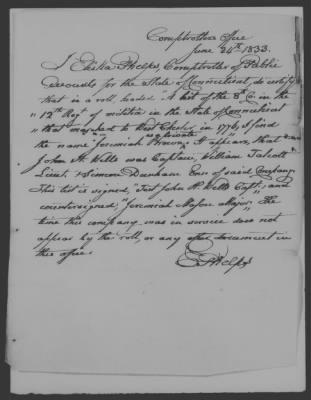 Comptrollers Office
June 24th 1833.
I Elisha Phelps Comptroller of Public
Accounts for the State of Connecticut do certify
that in a roll headed "A list of the 8th Co. in the
"12th Regt of militia in the State of Connecticut
"that marched to West Chester in 1776, I find
the name "Jeremiah Brown, as private It appears, that
John H. Wells was Captain, William Talcott
Lieut. & Simeon Dunham Ens. of said Company
This list is signed, "Test John H. Wells Capt., and
countersigned, "Jeremiah Mason Major" The
time this company was in service does not
appear by the roll, or any other document in
this office.
E. Phelps